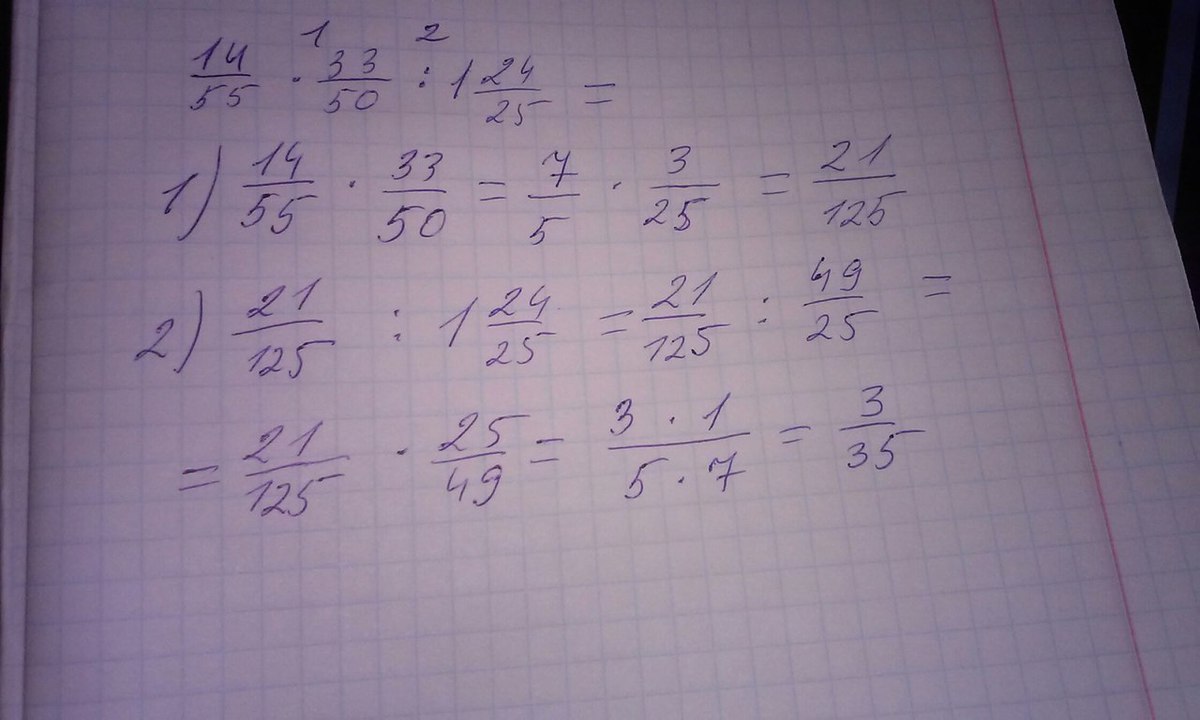 14/55 · 33/50 : 1 24/25 =
1 2
1) 14/55 · 33/50 = 7/5 · 3/25 = 21/125
2) 21/125 : 1 24/25 = 21/125 : 49/25 =
= 21/125 · 25/49 = 3 · 1/5 · 7 = 3/35